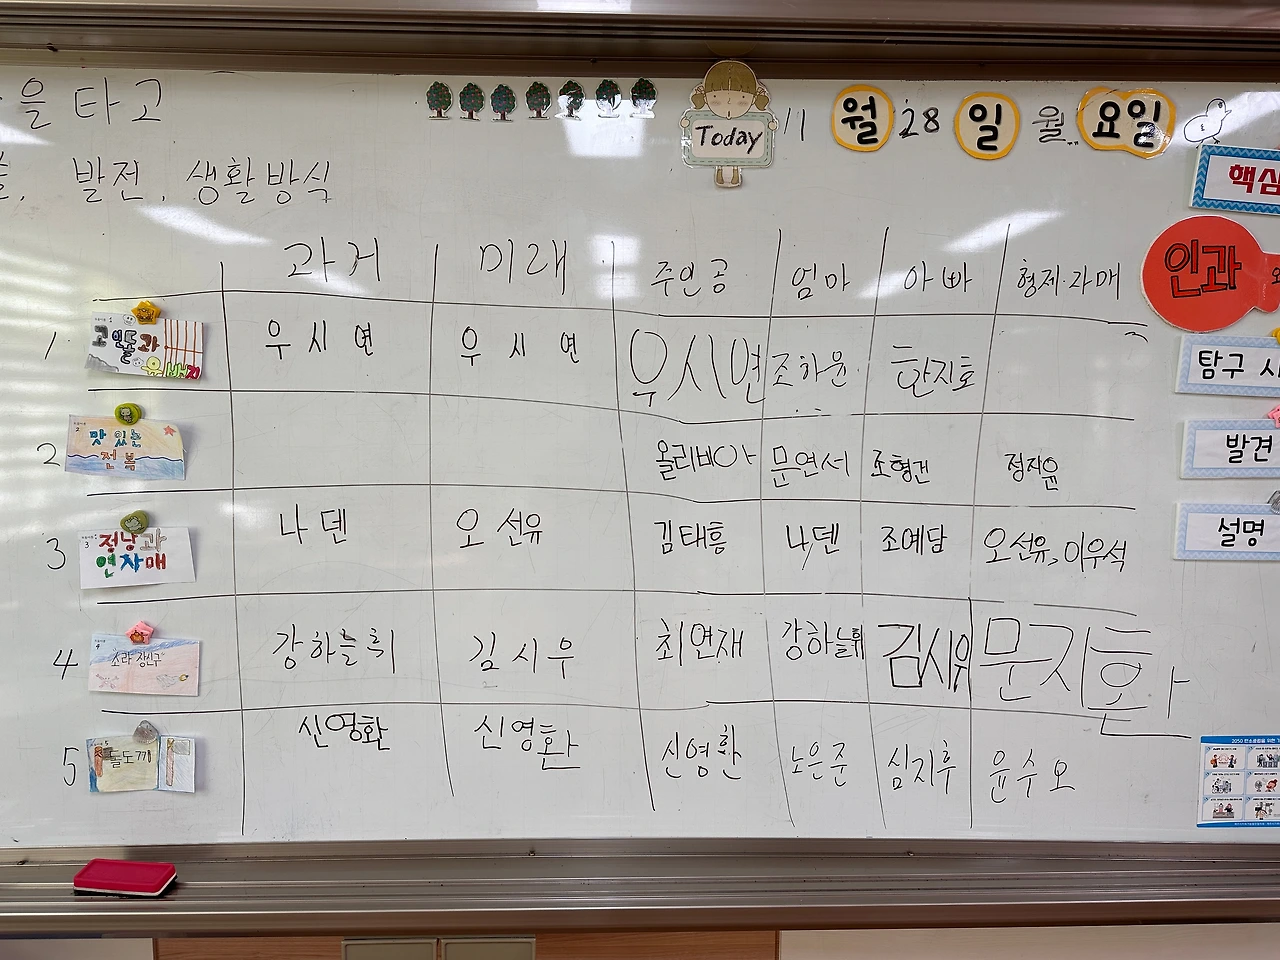 을 타고
Today 11 월 28 일 월 요일
발전, 생활방식
핵심
인과
과거 미래 주인공 엄마 아빠 형제·자매
1 고인돌과 우시연 우시연 우시연 조하윤 한지호
탐구 시
2 맛있는 전복 올리비아 문연서 조형건 정지윤
발견
3 정낭과 연자매 나덴 오선유 김태흠 나덴 조예담 오선유, 이우석
설명
4 소라 장신구 강하늘휘 김시우 최연재 강하늘휘 김시우 문지환
5 돌도끼 신영환 신영환 신영환 노은준 심지후 윤수오